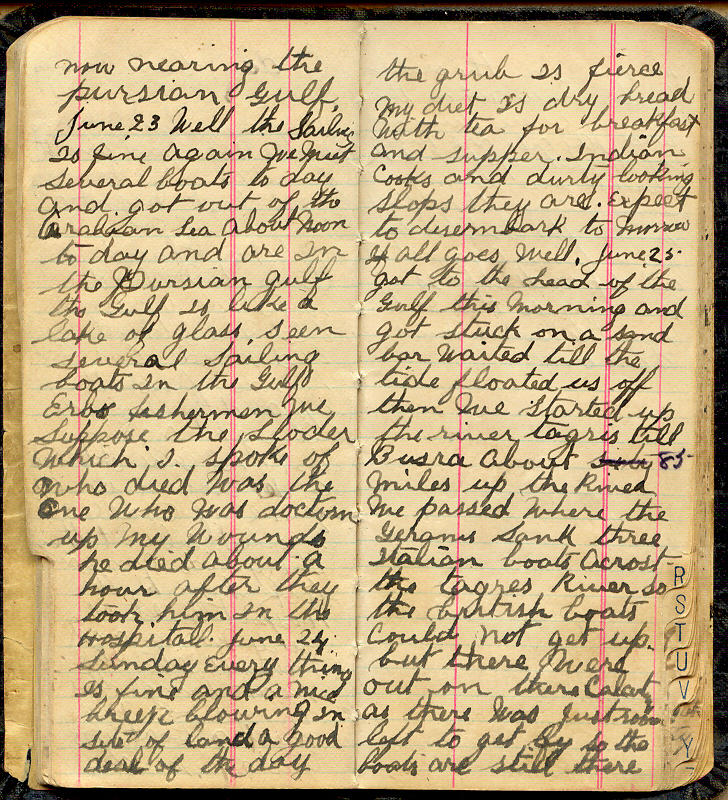 now nearing the
pursian Gulf.
June 23 Well the Sailing
is fine again We Meet
several boats to day
and got out of the
Arabian Sea About Noon
to day and are in
the Pursian gulf
the Gulf is like a
lake of glass seen
several Sailing
boats in the Gulf
Erbs fishermen We
suppose the Sloder
which I spoke of
who died was the
one Who Was doctorn
up My Wounds
he died about a
hour after they
took him in the
Hospital. June 24
Sunday Every thing
is fine and a nice
breeze blowing in
site of land a good
deal of the day
the grub is fierce
My diet is dry bread
With tea for breakfast
and supper. Indian
Cooks and durty looking
slops they are. Expect
to disembark to Morrow
if all goes Well. June 25
got to the head of the
Gulf this Morning and
got stuck on a sand
bar Waited till the
tide floated us off
then We Started up
the river tagris till
Busra About 85
miles up the River
We passed Where the
Germs Sank three
Italian boats Acrost
the tagres River so
the british boats
Could Not get up.
but there Were
out on there Calat
as there Was Just room
left to get by so the
boats are still there
R
S
T
U
V
Y